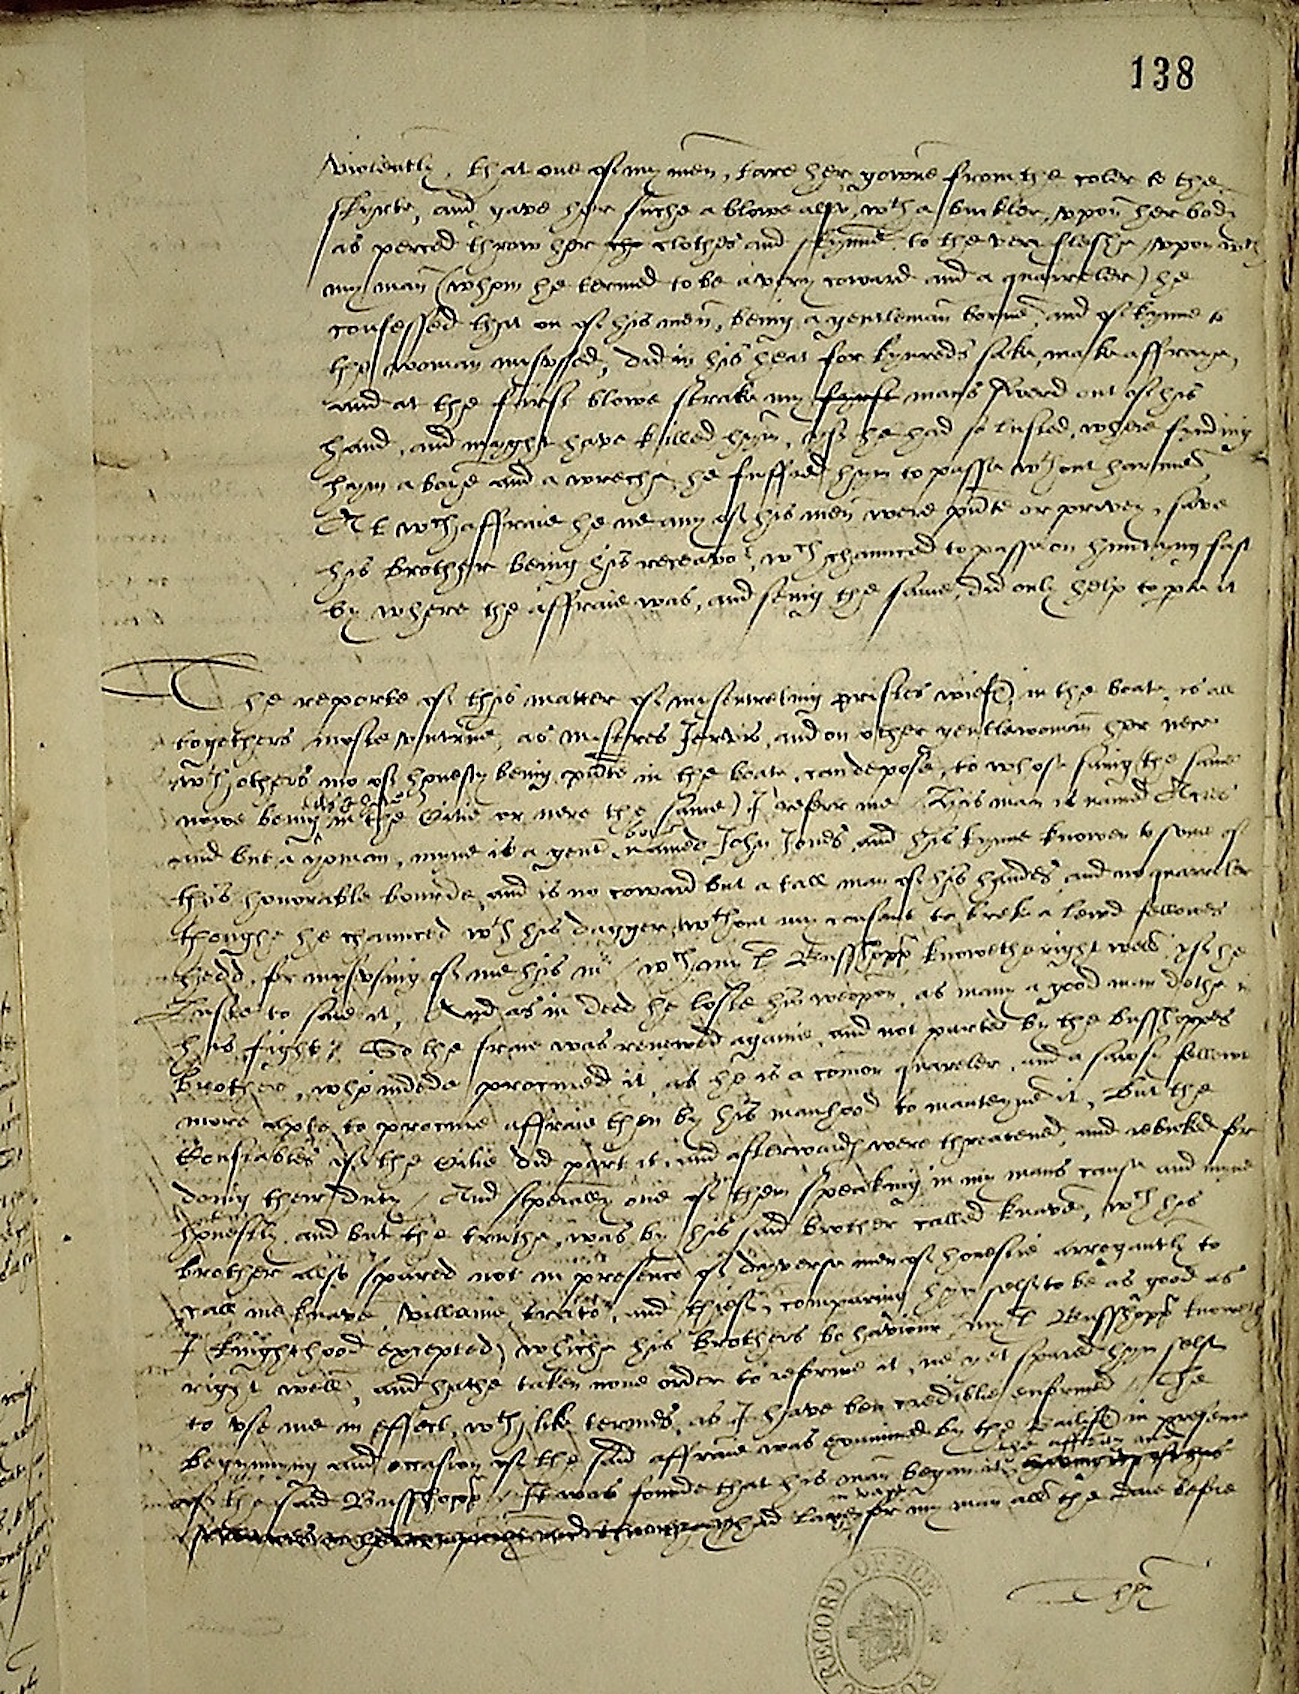 138
violently, that one of my men, tare her gowne from the coler to the
skyrte, and gave her suche a blowe also, wth a buckler, vpon her body
as perced throw her clothes and skynne, to the very fleshe vpon wch
my man (whom he termed to be a very coward and a quareler) he
confessed that on of his men, being a gentleman borne, and of kynne to
the woman misvsed, did in his heat for kynreds sake, make affraye,
and at the first blowe strake my fyrst mans sword out of his
hand, and myght have killed hym, yf he had so lusted, where fynding
hym a boye and a wreche, he suffred hym to passe wthout harme
At wch affraie he ne any of his men were pnte or prevey, save
his brother being his receavor, wch chaunced to passe on huntyng fast
by where the affraie was, and seing the same, did only help to part it
The reporte of this matter of misentreting pristes wiefe, in the boate, is all
togethers moste vntrue, as mistres Jervis, and on other gentlewoman her nece
wth others mo of honesty being pnte in the boate, can depose, to whose saing the same
nowe being in the Citie or nere the same) I referr me / His man is named
and but a yoman, myne is a gent borne named John Jones, and his kynne knowen to some of
this honorable bourde, and is no coward but a tall man of his handes and no quareler
thoughe he chaunced wth his dagger, wthout my consent to breke a lewd fellowes
hedd, for mysvsing of me his mr / wch my L Busshopp knowethe right well yf he
luste to saie it, And as in deed he loste his weapon, as many a good man dothe in
his fight / So the fraie was renewed againe, and not parted by the busshoppes
brother, who indede procured it, as he is a comon quareler, and a sawsy fellowe
more apte to procure affraie then by his manhood to manteyne it, But the
Constables of the Citie did part it, and afterwards were threatened, and rebuked for
doing their duty / And specially one of them speaking in my mans cause and myne
honestly, and but the truthe, was by his said brother called knave, wch his
brother also spared not in presence of dyverse men of honestie arrogantly to
call me knave, villaine, traitor, and thief, comparing hym self to be as good as
I (knighthood excepted) whiche his brothers behaviour my L Busshopp knoweth
right well, and hathe taken none order to reforme it, ne yet spared hym self
to vse me in effect, wth like termes, as I have ben credible enformed / The
begynnyng and occasion of the said affraie was examined by the Bailifes in presence
of the said Busshopp / It was founde that his man began it, the affray and
had laye in wayte for my man all the daie before
The
RECORD OFFICE